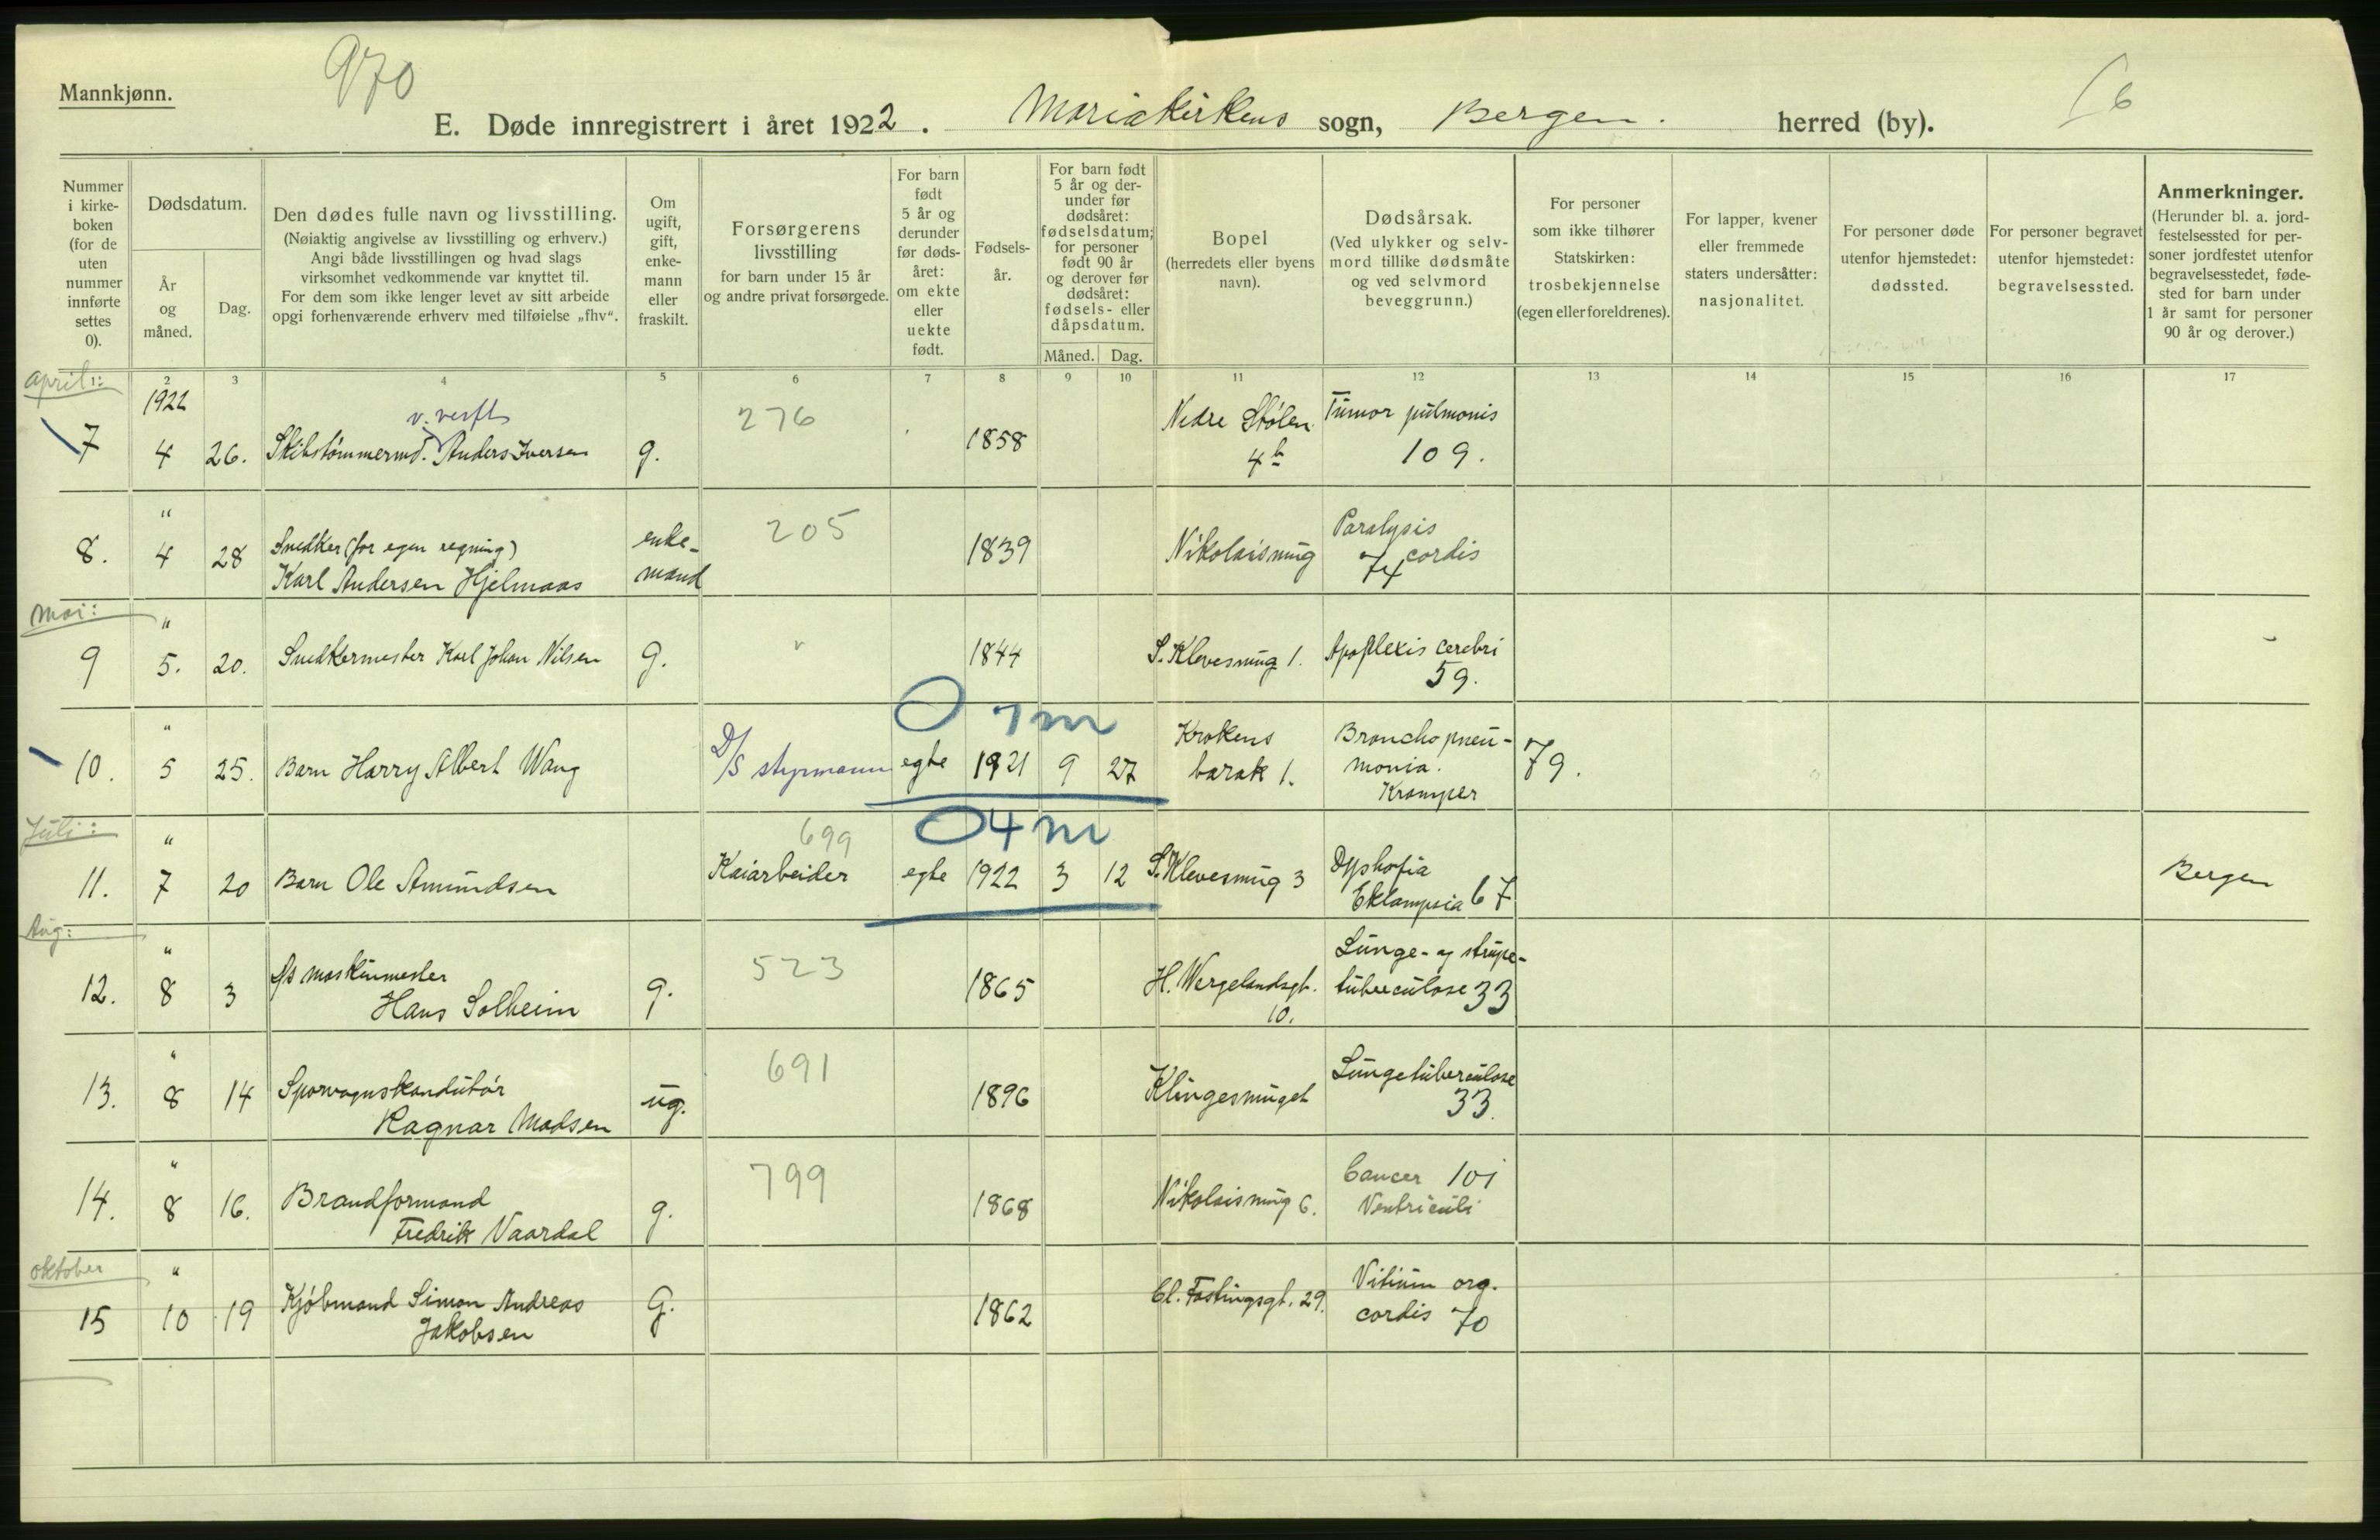 970
Mannkjønn.
E. Døde innregistrert i året 1922. Mariakirkens sogn, Bergen. herred (by).
6
Nummer i kirke-boken (for de uten nummer innførte settes 0).
Dødsdatum.
År og måned.
Dag.
Den dødes fulle navn og livsstilling.
(Nøiaktig angivelse av livsstilling og erhverv.)
Angi både livsstillingen og hvad slags
virksomhet vedkommende var knyttet til.
For dem som ikke lenger levet av sitt arbeide
opgi forhenværende erhverv med tilføielse „fhv“.
Om ugift, gift, enke-mann eller fraskilt.
Forsørgerens livsstilling
for barn under 15 år
og andre privat forsørgede.
For barn født 5 år og derunder før døds-året: om ekte eller uekte født.
Fødsels-år.
For barn født 5 år og der-under før dødsåret: fødselsdatum; for personer født 90 år og derover før dødsåret: fødsels- eller dåpsdatum.
Måned. Dag.
Bopel
(herredets eller byens navn).
Dødsårsak.
(Ved ulykker og selv-mord tillike dødsmåte og ved selvmord beveggrunn.)
For personer som ikke tilhører Statskirken: trosbekjennelse (egen eller foreldrenes).
For lapper, kvener eller fremmede staters undersåtter: nasjonalitet.
For personer døde utenfor hjemstedet: dødssted.
For personer begravet utenfor hjemstedet: begravelsessted.
Anmerkninger.
(Herunder bl. a. jord-festelsessted for per-soner jordfestet utenfor begravelsesstedet, føde-sted for barn under 1 år samt for personer 90 år og derover.)
1 2 3 4 5 6 7 8 9 10 11 12 13 14 15 16 17
april:
1922
v. verft
7 4 26. Skibstømmermd. Anders Iversen g. 276 1858 Nedre Stølen 4b Tumor pulmonis 109.
"
8. 4 28 Snedker (for egen regning)
Karl Andersen Hjelmaas enke-mand 205 1839 Nikolaismug Paralysis cordis 74
mai:
"
9 5. 20. Snedkermester Karl Johan Nilsen g. 1844 S. Klevesmug 1. Apoplexis cerebri 59.
0 7 m
"
10. 5 25. Barn Harry Albert Wang D/S styrmann egte 1921 9 27 Krokens barak 1. Bronchopneu-monia. Kramper 79.
Juli:
0 4 m
"
11. 7 20 Barn Ole Amundsen 699 Kaiarbeider egte 1922 3 12 S. Klevesmug 3 Dystrofia Eklampsia 67 Bergen
Aug:
"
12. 8 3 maskinmester
Hans Solheim g. 523 1865 H. Wergelandsgt. 10. Lunge- og strupe-tuberculose 33
"
13. 8 14 Sporvognskonduktør
Ragnar Madsen ug. 691 1896 Klingesmuget Lungetuberculose 33.
"
14. 8 16. Brandformand
Fredrik Vaardal g. 799 1868 Nikolaismug 6. Cancer 101 Ventriculi
oktober
"
15 10 19 Kjøbmand Simon Andreas
Jakobsen G. 1862 Cl. Fastingsgt. 29. Vitium org. cordis 70